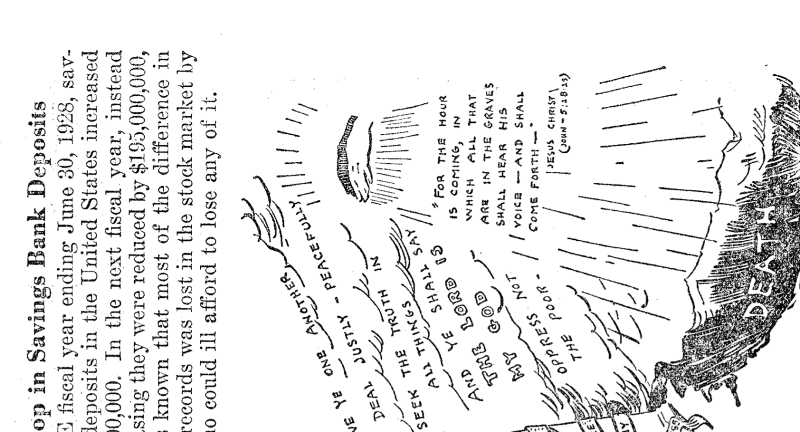 op in Savings Bank Deposits
E fiscal year ending June 30, 1928, sav-
deposits in the United States increased
00,000. In the next fiscal year, instead
sing they were reduced by $195,000,000,
s known that most of the difference in
records was lost in the stock market by
ho could ill afford to lose any of it.
VE YE ONE ANOTHER
DEAL JUSTLY - PEACEFULLY
SEEK THE TRUTH IN
ALL THINGS
AND YE SHALL SAY
THE LORD IS
MY GOD
OPPRESS NOT
THE POOR -
"FOR THE HOUR
IS COMING, IN
WHICH ALL THAT
ARE IN THE GRAVES
SHALL HEAR HIS
VOICE — AND SHALL
COME FORTH —"
JESUS CHRIST
(JOHN - 5:28-29)
DEATH